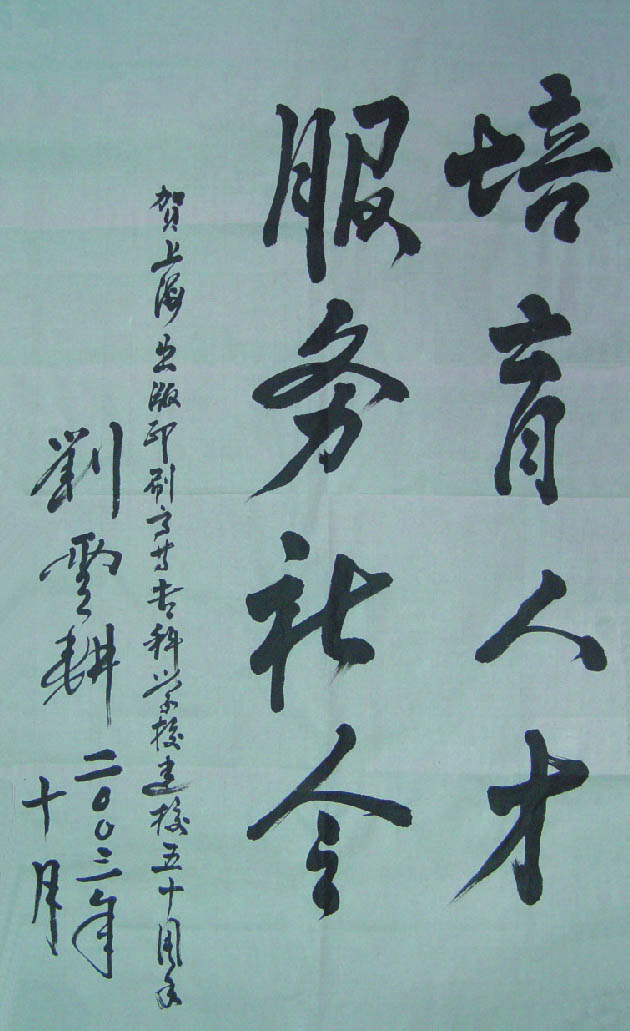 培育人才
服务社会
贺上海出版印刷高等专科学校建校五十周年
劉雲耕 二〇〇三年
十月